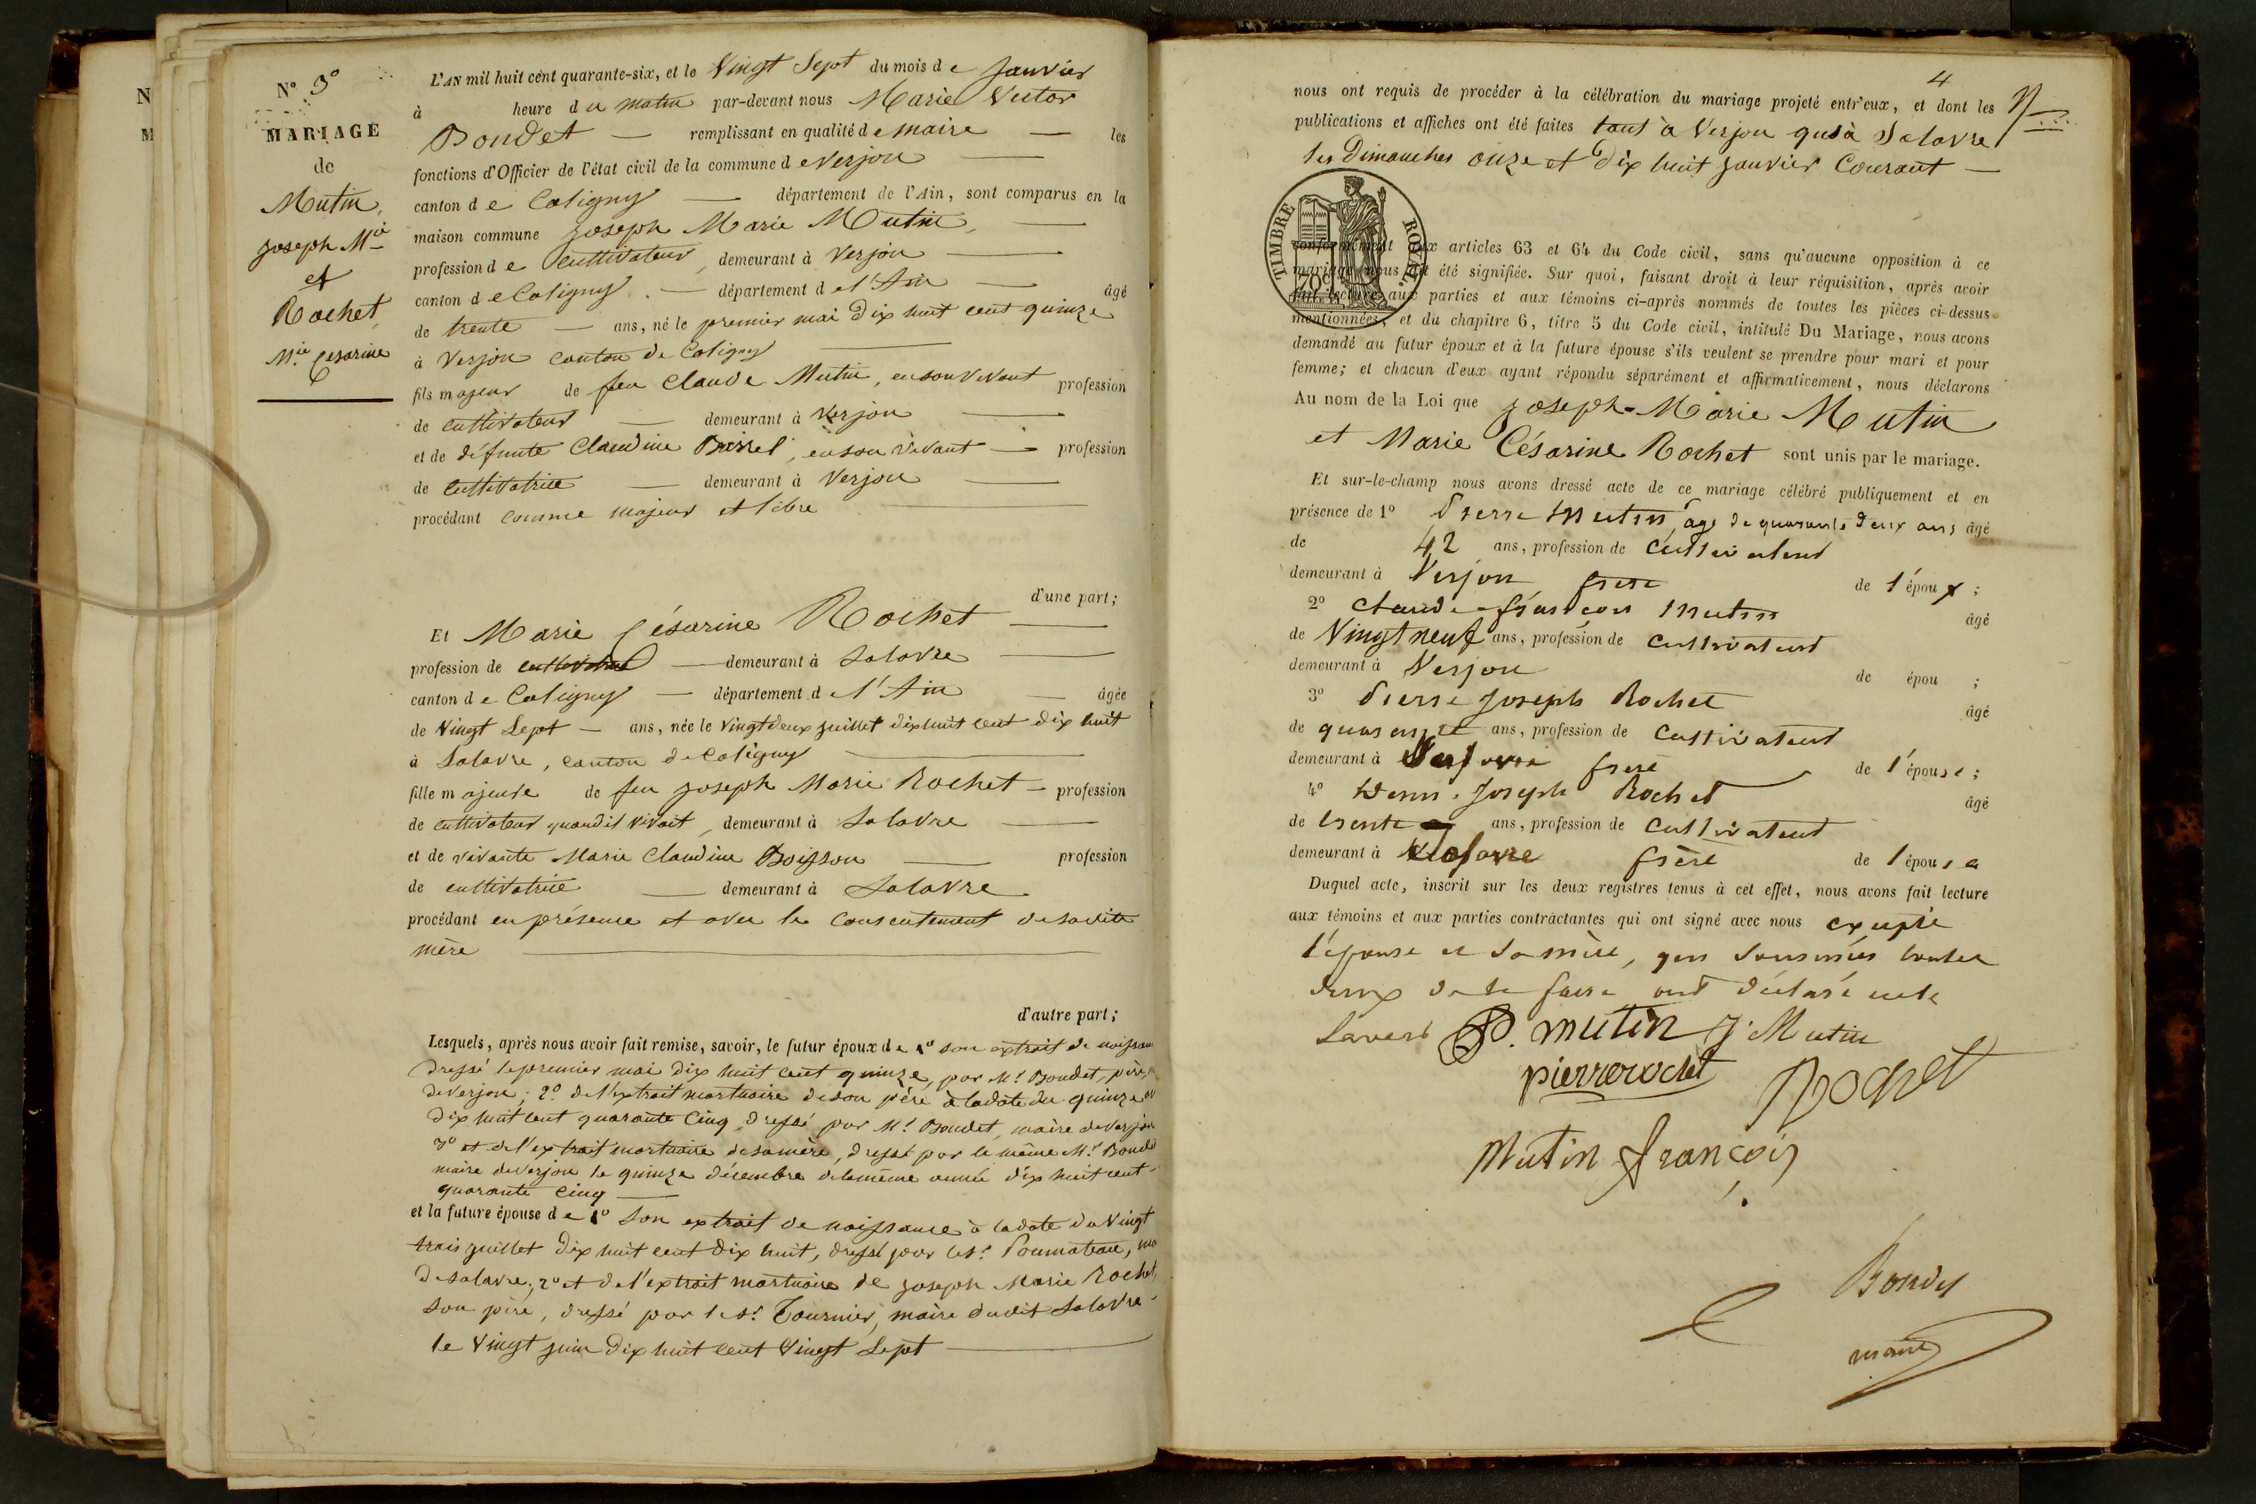 N
M
N° 3°
MARIAGE
de
Mutin,
Joseph Mie
et
Rochet,
Mie Césarine
L'AN mil huit cent quarante-six, et le Vingt Sept du mois de Janvier
à heure du matin par-devant nous Marie Victor
Boudet — remplissant en qualité de maire — les
fonctions d'Officier de l'état civil de la commune de Verjon —
canton de Coligny — département de l'Ain, sont comparus en la
maison commune Joseph Marie Mutin, —
profession de cultivateur, demeurant à Verjon —
canton de Coligny — département de l'Ain — âgé
de trente — ans, né le premier mai dix huit cent quinze
à Verjon canton de Coligny —
fils majeur de feu Claude Mutin, en son vivant profession
de cultivateur — demeurant à Verjon —
et de défunte Claudine , en son vivant — profession
de cultivatrice — demeurant à Verjon —
procédant comme majeur et libre —
d'une part;
Et Marie Césarine Rochet —
profession de cultivateur — demeurant à Salavre —
canton de Coligny — département de l'Ain — âgée
de Vingt Sept — ans, née le vingt deux juillet dix huit cent dix huit
à Salavre, canton de Coligny —
fille majeure de feu Joseph Marie Rochet — profession
de cultivateur quand il vivait, demeurant à Salavre —
et de vivante Marie Claudine Boisson — profession
de cultivatrice — demeurant à Salavre
procédant en présence et avec le consentement de sa dite
mère —
d'autre part;
Lesquels, après nous avoir fait remise, savoir, le futur époux de 1° son extrait de naissan
dressé le premier mai dix huit cent quinze, par Mr. Boudet, père,
de Verjon; 2° de l'extrait mortuaire de son père à la date du quinze
dix huit cent quarante cinq, dressé par Mr. Boudet, maire de Verjon
3° et de l'extrait mortuaire de sa mère, dressé par le même Mr. Boudet
maire de Verjon le quinze décembre de la même année dix huit cent
quarante cinq —
et la future épouse de 1° son extrait de naissance à la date du vingt
trois juillet dix huit cent dix huit, dressé par le sr. , ma
de Salavre; 2° et de l'extrait mortuaire de Joseph Marie Rochet,
son père, dressé par le sr. Tournier, maire dudit Salavre
le vingt juin dix huit cent vingt sept —
4
nous ont requis de procéder à la célébration du mariage projeté entr'eux, et dont les
publications et affiches ont été faites tant à Verjon qu'à Salavre
les dimanches onze et dix huit janvier courant —
TIMBRE ROYAL
70c
conformément aux articles 63 et 64 du Code civil, sans qu'aucune opposition à ce
mariage nous ait été signifiée. Sur quoi, faisant droit à leur réquisition, après avoir
fait lecture aux parties et aux témoins ci-après nommés de toutes les pièces ci-dessus
mentionnées, et du chapitre 6, titre 5 du Code civil, intitulé Du Mariage, nous avons
demandé au futur époux et à la future épouse s'ils veulent se prendre pour mari et pour
femme; et chacun d'eux ayant répondu séparément et affirmativement, nous déclarons
Au nom de la Loi que Joseph-Marie Mutin
et Marie Césarine Rochet sont unis par le mariage.
Et sur-le-champ nous avons dressé acte de ce mariage célébré publiquement et en
présence de 1° Pierre Mutin, âgé de quarante deux ans âgé
de 42 ans, profession de cultivateur
demeurant à Verjon frere de l'époux;
2° Claude françois Mutin âgé
de Vingt neuf ans, profession de cultivateur
demeurant à Verjon de épou ;
3° Pierre Joseph Rochet âgé
de quarante ans, profession de cultivateur
demeurant à frere de l'épouse;
4° Joseph Rochet âgé
de trente ans, profession de cultivateur
demeurant à frère de l'épouse
Duquel acte, inscrit sur les deux registres tenus à cet effet, nous avons fait lecture
aux témoins et aux parties contractantes qui ont signé avec nous excepté
l'épouse et sa mère, toutes
deux de le faire ont déclaré ne le
savoir P. mutin J. Mutin
pierre rochet Rochet
Mutin françois
Boudet
maire